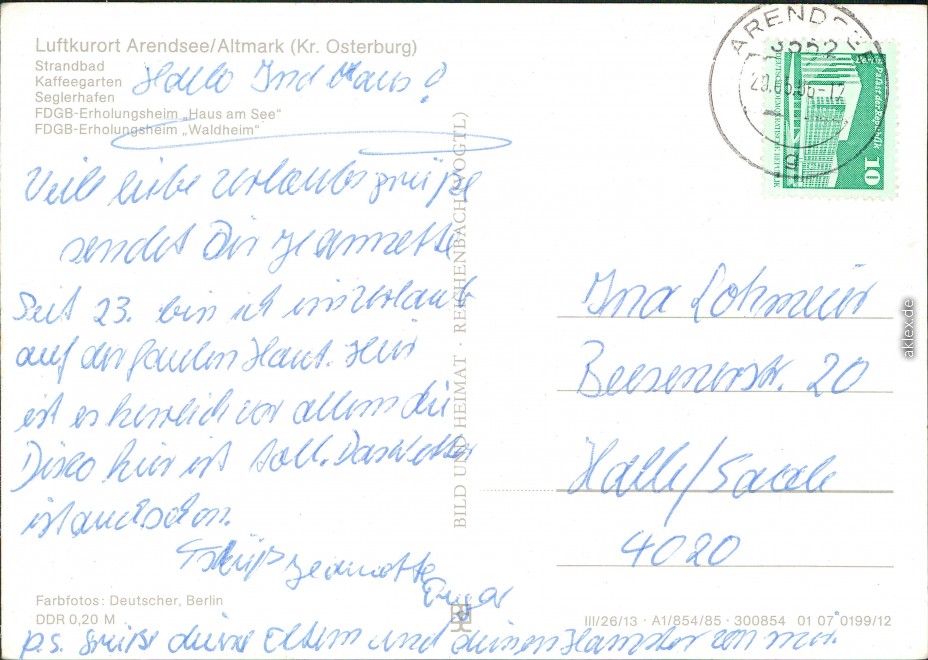 Luftkurort Arendsee/Altmark (Kr. Osterburg)
Strandbad
Kaffeegarten
Seglerhafen
FDGB-Erholungsheim „Haus am See"
FDGB-Erholungsheim „Waldheim"
Hallo Ina Maus!
Viele liebe Urlaubsgrüße
sendet Dir Jeannette
Seit 23. bin ich im Urlaub
auf der faulen Haut. Hier
ist es herrlich vor allem die
Disco hier ist toll. Das Wetter
ist auch schön.
Tschüß Jeannette
Farbfotos: Deutscher, Berlin
DDR 0,20 M
p.s. Grüße deine Eltern und deinen Hamster von mir.
BILD UND HEIMAT · REICHENBACH (VOGTL)
ARENDSEE
3552
g
Berlin, Palast der Republik
DEUTSCHE DEMOKRATISCHE REPUBLIK
10
Ina Lohmeier
Beesenerstr. 20
Halle/Saale
4020
III/26/13 · A1/854/85 · 300854 01 07 0199/12
aklex.de